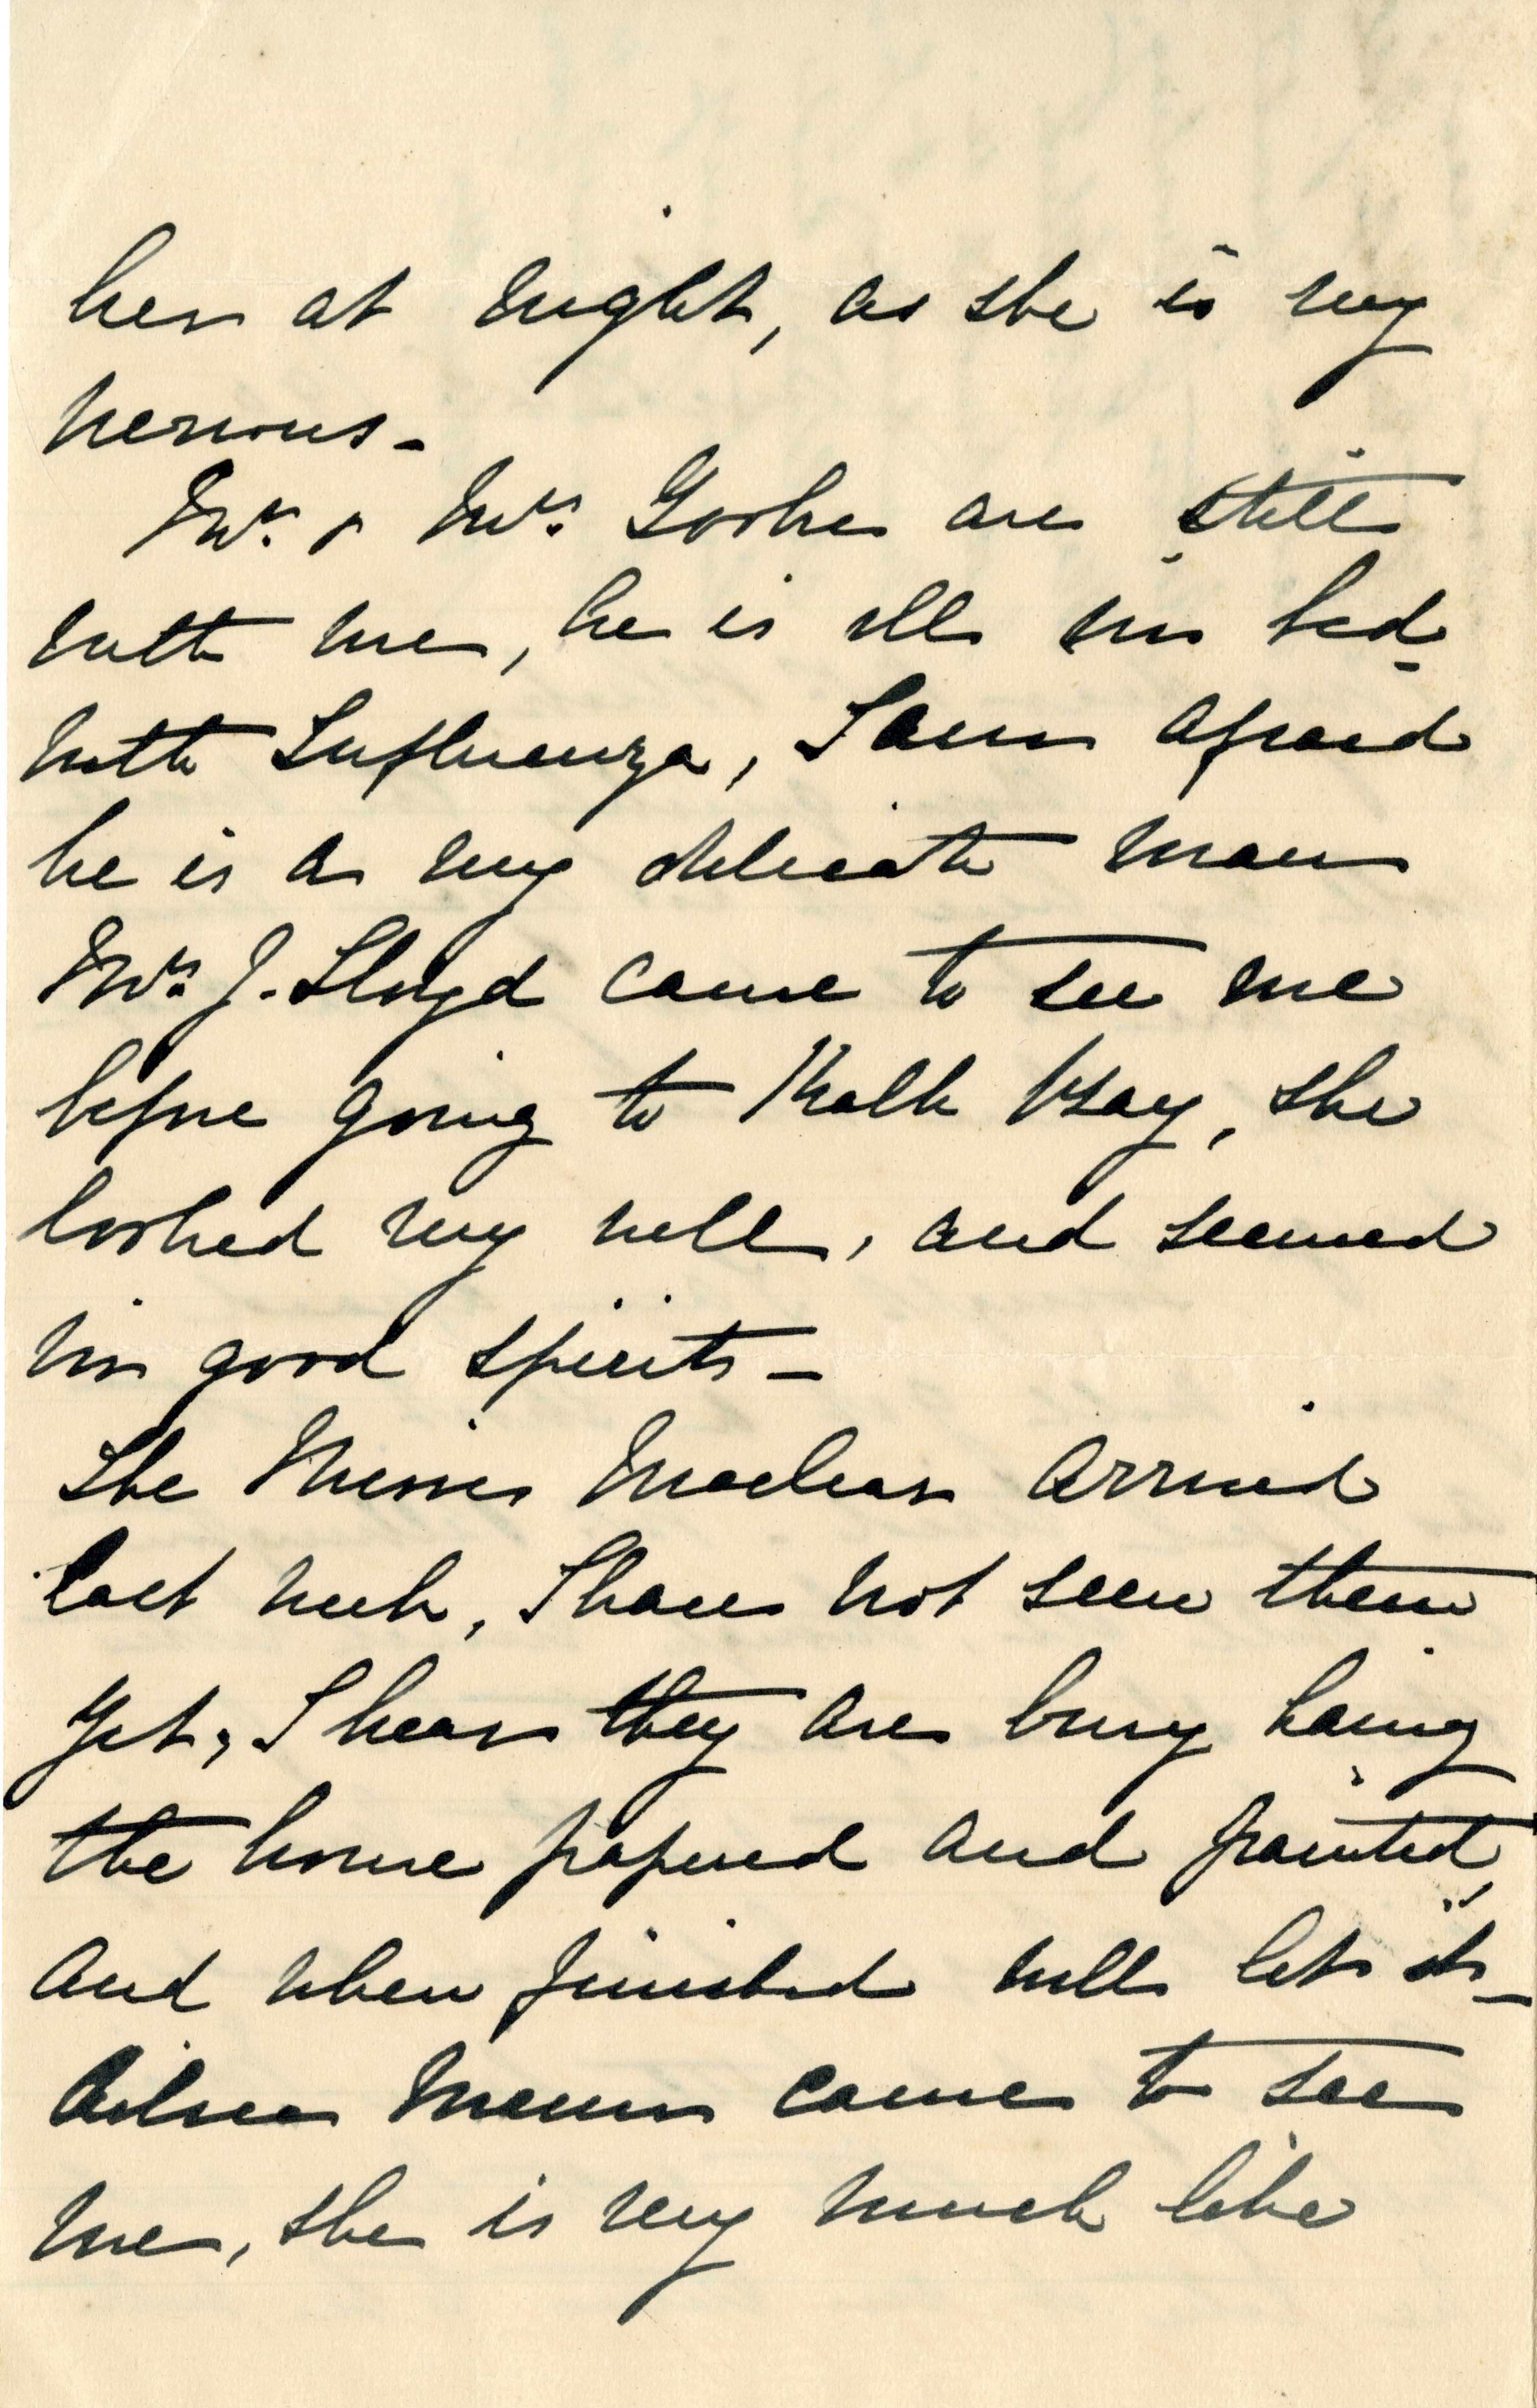 her at night, as she is very
nervous -
Mr. & Mrs. Gooke are still
with me, he is ill in bed
with Influenza, I am afraid
he is a very delicate man
Mrs. J. Lloyd came to see me
before going to Kalk Bay, she
looked very well, and seemed
in good spirits -
The Misses Maclear arrived
last week, I have not seen them
yet, I hear they are busy having
the house papered and painted,
and when finished will let it -
came to see
me, she is very much like